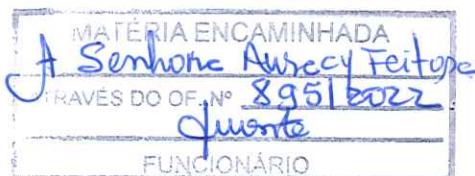 MATÉRIA ENCAMINHADA
A Senhora Aurecy Feitosa
RAVÉS DO OF. Nº 895/2022
FUNCIONÁRIO